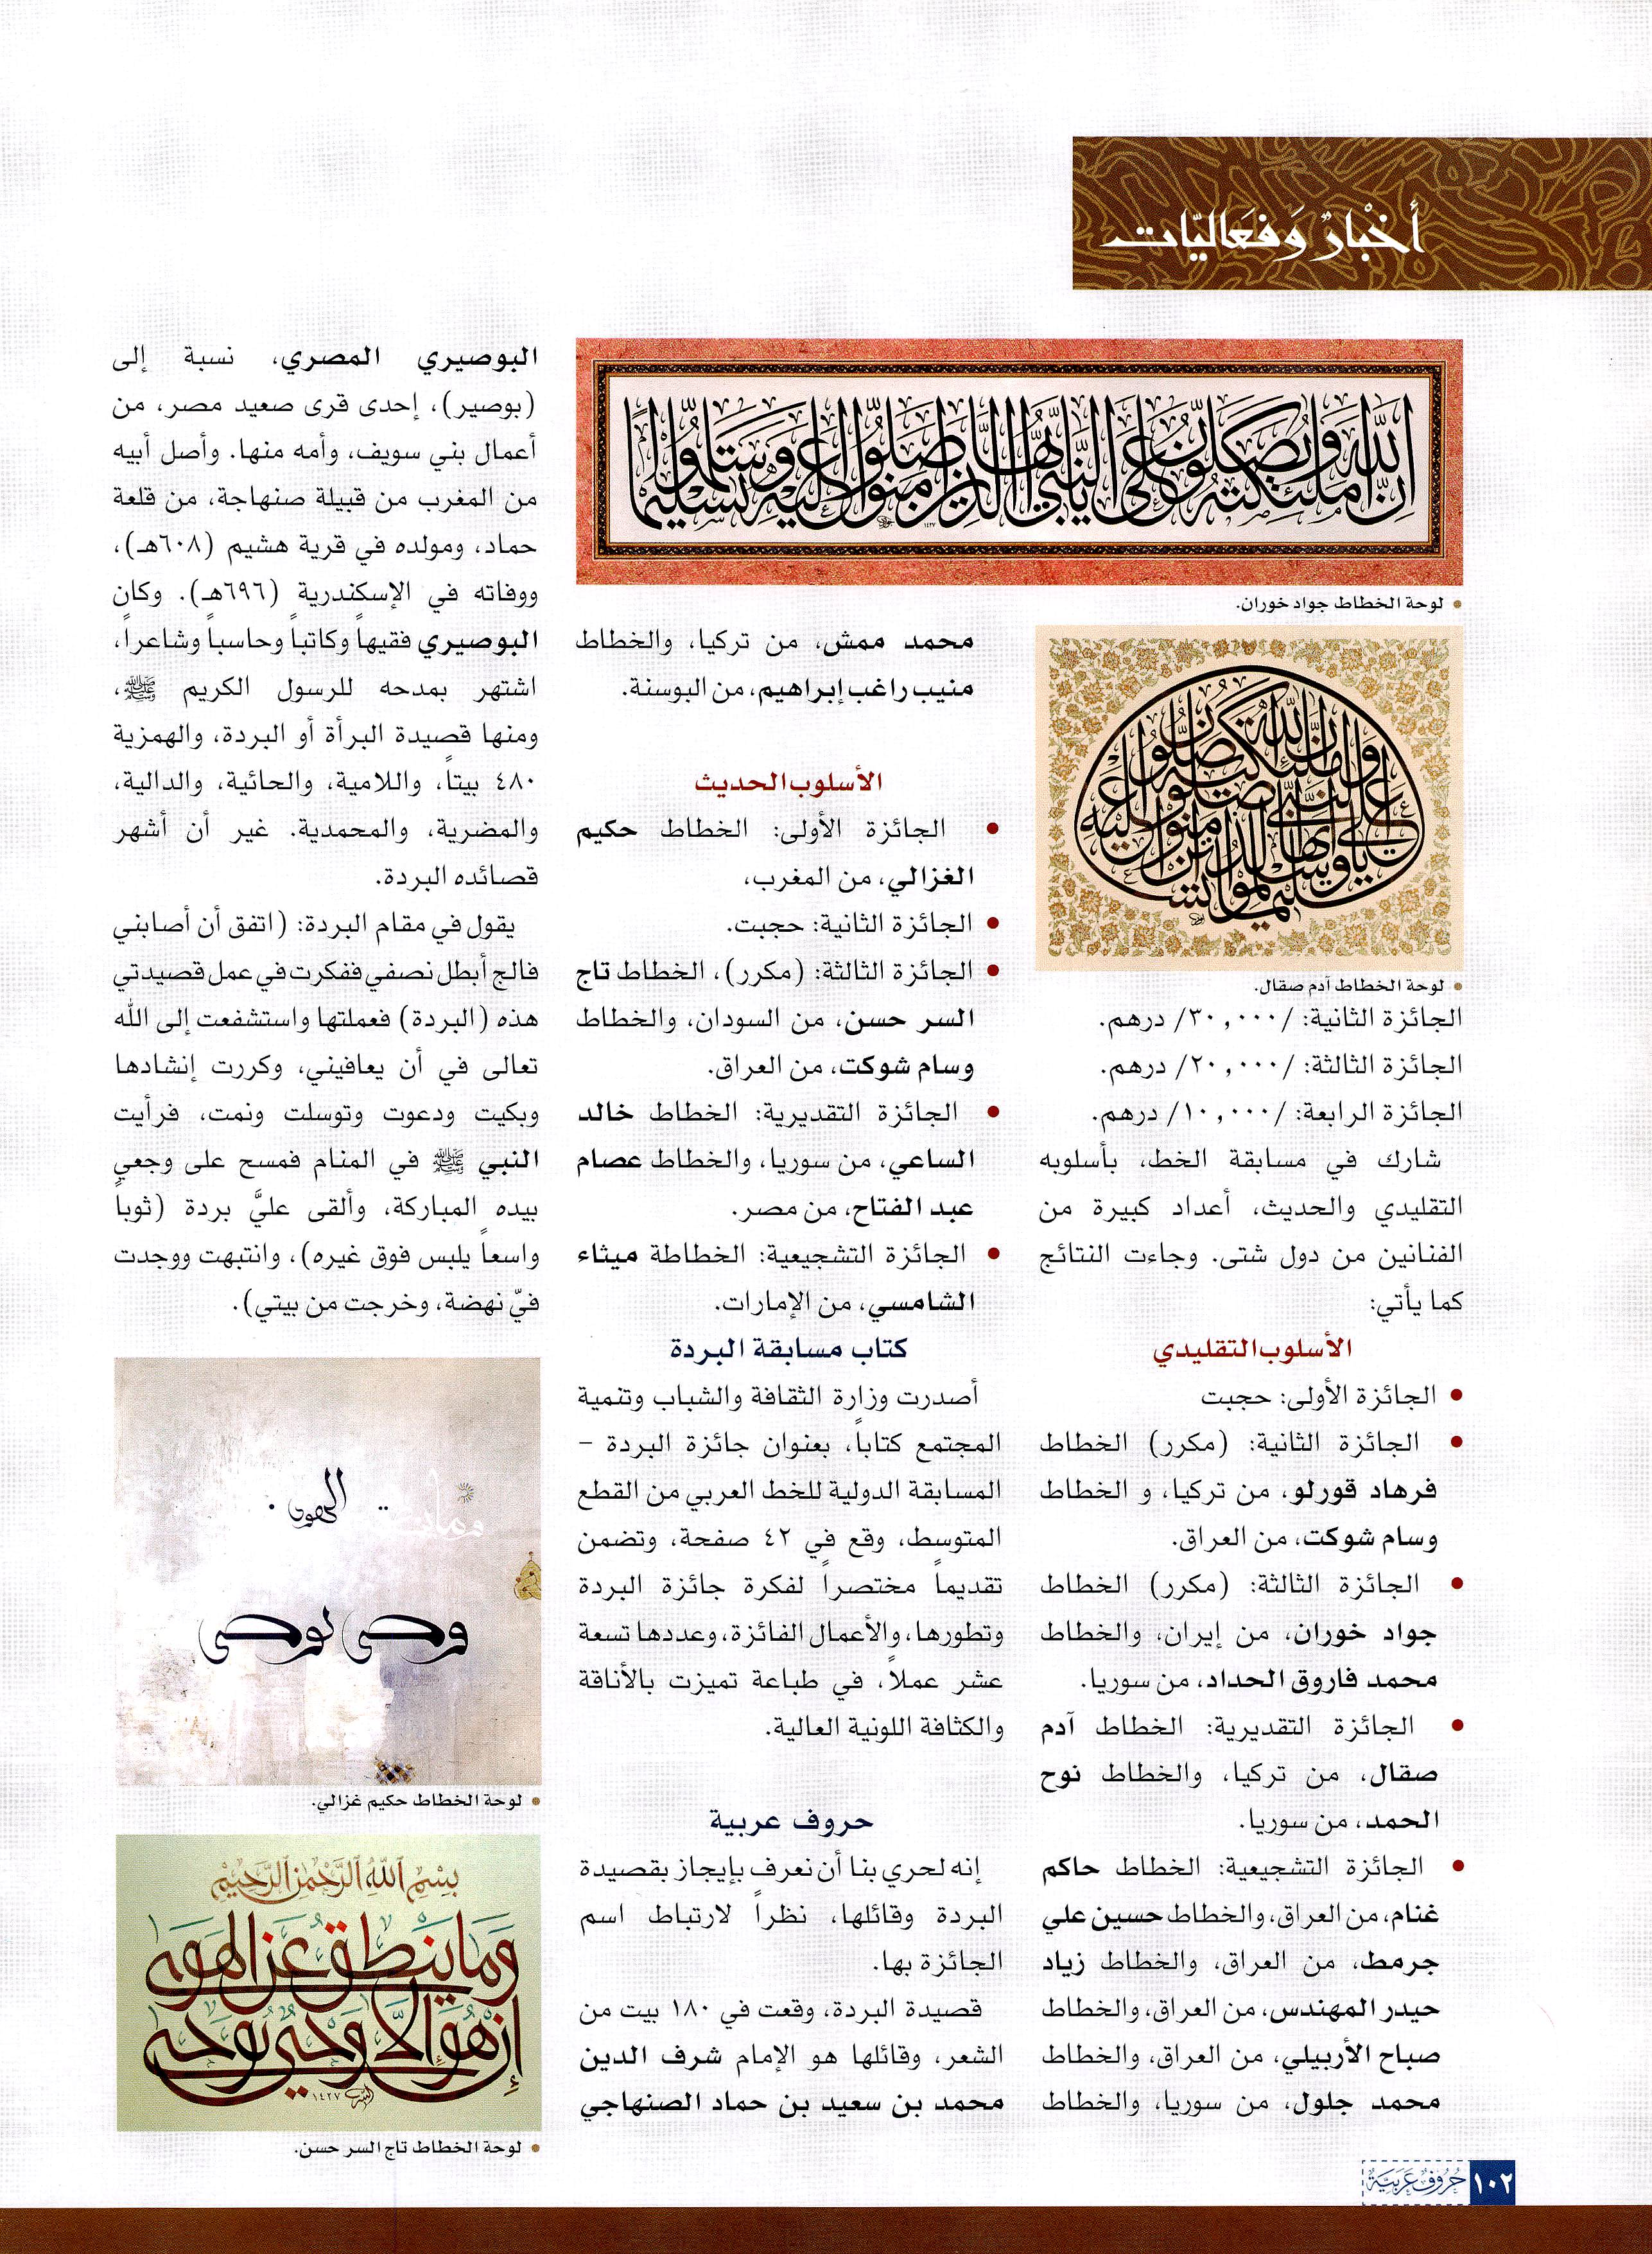 أخبار وفعاليات
إن الله وملائكته يصلون على النبي يا أيها الذين آمنوا صلوا عليه وسلموا تسليما
لوحة الخطاط جواد خوران.
إن الله وملائكته يصلون على النبي يا أيها الذين آمنوا صلوا عليه وسلموا تسليما
لوحة الخطاط آدم صقال.
الجائزة الثانية: /٣٠,٠٠٠/ درهم.
الجائزة الثالثة: /٢٠,٠٠٠/ درهم.
الجائزة الرابعة: /١٠,٠٠٠/ درهم.
شارك في مسابقة الخط، بأسلوبه
التقليدي والحديث، أعداد كبيرة من
الفنانين من دول شتى. وجاءت النتائج
كما يأتي:
الأسلوب التقليدي
• الجائزة الأولى: حجبت
• الجائزة الثانية: (مكرر) الخطاط
فرهاد قورلو، من تركيا، و الخطاط
وسام شوكت، من العراق.
• الجائزة الثالثة: (مكرر) الخطاط
جواد خوران، من إيران، والخطاط
محمد فاروق الحداد، من سوريا.
• الجائزة التقديرية: الخطاط آدم
صقال، من تركيا، والخطاط نوح
الحمد، من سوريا.
• الجائزة التشجيعية: الخطاط حاكم
غنام، من العراق، والخطاط حسين علي
جرمط، من العراق، والخطاط زياد
حيدر المهندس، من العراق، والخطاط
صباح الأربيلي، من العراق، والخطاط
محمد جلول، من سوريا، والخطاط
محمد ممش، من تركيا، والخطاط
منيب راغب إبراهيم، من البوسنة.
الأسلوب الحديث
• الجائزة الأولى: الخطاط حكيم
الغزالي، من المغرب،
• الجائزة الثانية: حجبت.
• الجائزة الثالثة: (مكرر)، الخطاط تاج
السر حسن، من السودان، والخطاط
وسام شوكت، من العراق.
• الجائزة التقديرية: الخطاط خالد
الساعي، من سوريا، والخطاط عصام
عبد الفتاح، من مصر.
• الجائزة التشجيعية: الخطاطة ميثاء
الشامسي، من الإمارات.
كتاب مسابقة البردة
أصدرت وزارة الثقافة والشباب وتنمية
المجتمع كتاباً، بعنوان جائزة البردة –
المسابقة الدولية للخط العربي من القطع
المتوسط، وقع في ٤٢ صفحة، وتضمن
تقديماً مختصراً لفكرة جائزة البردة
وتطورها، والأعمال الفائزة، وعددها تسعة
عشر عملاً، في طباعة تميزت بالأناقة
والكثافة اللونية العالية.
حروف عربية
إنه لحري بنا أن نعرف بإيجاز بقصيدة
البردة وقائلها، نظراً لارتباط اسم
الجائزة بها.
قصيدة البردة، وقعت في ١٨٠ بيت من
الشعر، وقائلها هو الإمام شرف الدين
محمد بن سعيد بن حماد الصنهاجي
البوصيري المصري، نسبة إلى
(بوصير)، إحدى قرى صعيد مصر، من
أعمال بني سويف، وأمه منها. وأصل أبيه
من المغرب من قبيلة صنهاجة، من قلعة
حماد، ومولده في قرية هشيم (٦٠٨هـ)،
ووفاته في الإسكندرية (٦٩٦هـ). وكان
البوصيري فقيهاً وكاتباً وحاسباً وشاعراً،
اشتهر بمدحه للرسول الكريم ﷺ،
ومنها قصيدة البرأة أو البردة، والهمزية
٤٨٠ بيتاً، واللامية، والحائية، والدالية،
والمضرية، والمحمدية. غير أن أشهر
قصائده البردة.
يقول في مقام البردة: (اتفق أن أصابني
فالج أبطل نصفي ففكرت في عمل قصيدتي
هذه (البردة) فعملتها واستشفعت إلى الله
تعالى في أن يعافيني، وكررت إنشادها
وبكيت ودعوت وتوسلت ونمت، فرأيت
النبي ﷺ في المنام فمسح على وجعي
بيده المباركة، وألقى عليَّ بردة (ثوباً
واسعاً يلبس فوق غيره)، وانتبهت ووجدت
فيّ نهضة، وخرجت من بيتي).
الهوى
وحى يوحى
لوحة الخطاط حكيم غزالي.
بسم الله الرحمن الرحيم
وما ينطق عن الهوى
إن هو إلا وحي يوحى
١٤٢٧
لوحة الخطاط تاج السر حسن.
١٠٢ حروف عربية